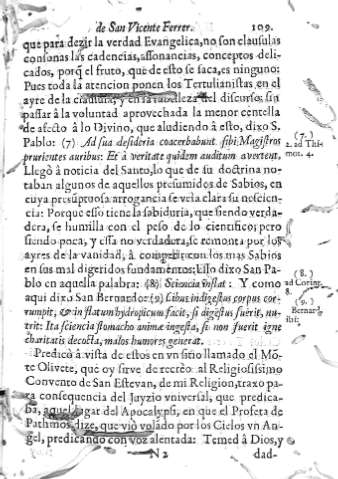 de San Vicente Ferrer. 109.
que para dezir la verdad Evangelica, no son clausulas
consonas las cadencias, assonancias, conceptos deli-
cados, porq̃ el fruto, que de esto se saca, es ninguno:
Pues toda la atencion ponen los Tertulianistas en el
ayre de la clausula, y en la del discurso, sin
passar à la voluntad aprovechada la menor centella
de afecto à lo Divino, que aludiendo à esto, dixo S.
Pablo: (7) Ad sua desideria coacerbabunt sibi Magistros
prurientes auribus: Et à veritate quidem auditum avertent.
Llegò à noticia del Santo, lo que de su doctrina no-
taban algunos de aquellos presumidos de Sabios, en
cuya presuptuosa arrogancia se vela clara su nescien-
cia: Porque esso tiene la sabiduria, que siendo verda-
dera, se humilla con el peso de lo cientifico; pero
siendo poca, y essa no verdadera, se remonta por los
ayres de la vanidad, à competir con los mas Sabios
en sus mal digeridos fundamentos; Esso dixo San Pa-
blo en aquella palabra: (8) Sciencia inflat: Y como
aqui dixo San Bernardo: (9) Libus indigestus corpus cor-
rumpit, & in flatum hydropicum facit, si digestus fuerit, nu-
trit: Ita sciencia stomacho animæ ingesta, si non fuerit igne
charitatis decocta, malos humores generat.
Predicò à vista de estos en vn sitio llamado el Mõ-
te Olivete, que oy sirve de recreo al Religiosissimo
Convento de San Estevan, de mi Religion, traxo pa-
ra consequencia del Juyzio vniversal, que predica-
ba, aquel lugar del Apocalypsi, en que el Profeta de
Pathmos dize, que viò volado por los Cielos vn An-
gel, predicando con voz alentada: Temed à Dios, y
N 2 dad-
(7.)
2. ad Thi-
mot. 4.
(8.)
ad Corint.
8.
(9.)
Bernar.
ibi: